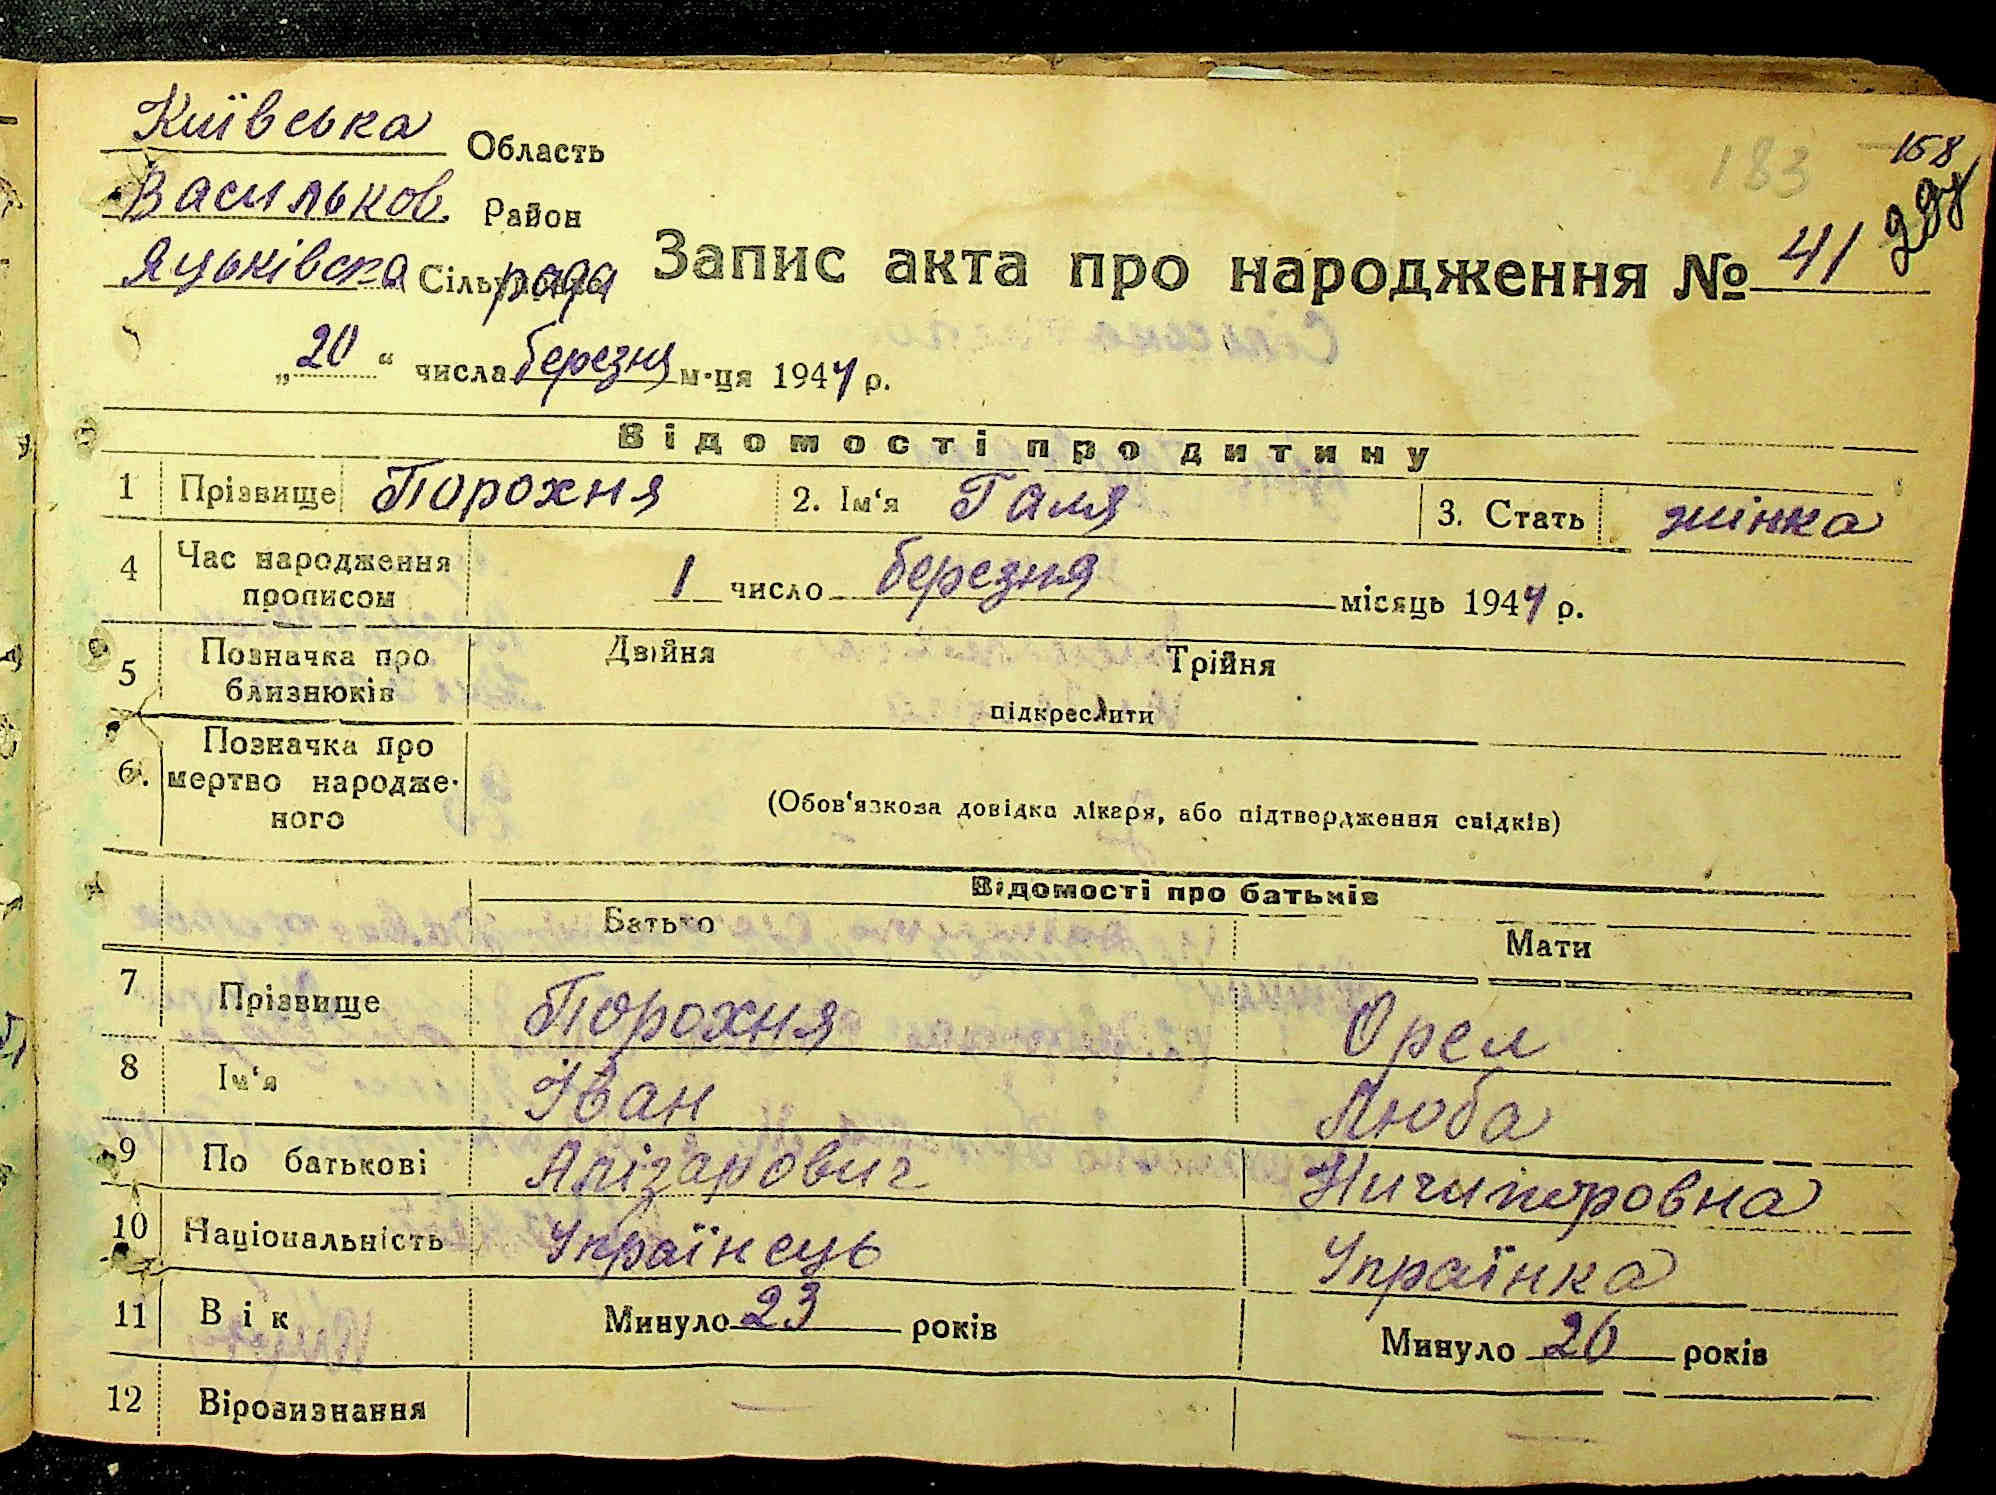 Київська Область
183 158
Васильков. Район
Яцьківска Сіль рада Запис акта про народження № 41
„20“ числа березня м-ця 1944 р.
Відомості про дитину
1 Прізвище Порохня 2. Ім‘я Галя 3. Стать жінка
4 Час народження прописом 1 число березня місяць 1944 р.
5 Позначка про близнюків Двійня Трійня
підкреслити
6. Позначка про мертво народже-
ного (Обов‘язкова довідка лікаря, або підтвердження свідків)
Відомості про батьків
Батько Мати
7 Прізвище Порохня Орел
8 Ім‘я Іван Люба
9 По батькові Алізарович Ничипоровна
10 Національність Українець Українка
11 Вік Минуло 23 років Минуло 20 років
12 Віровизнання — —